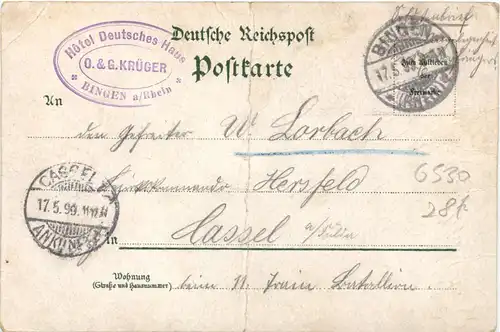 Deutsche Reichspost
Postkarte
Hôtel Deutsches Haus
O. & G. KRÜGER
BINGEN a/Rhein
BINGEN
17.5.99
Zum Aufkleben
der
Freimarke
An
den Gefreiter W Lorbach
Hersfeld
6530
28f
CASSEL
17.5.99. 11-12.N
ANKUNFT
in Cassel
Wohnung
(Straße und Hausnummer)
beim 11. Train Bataillon